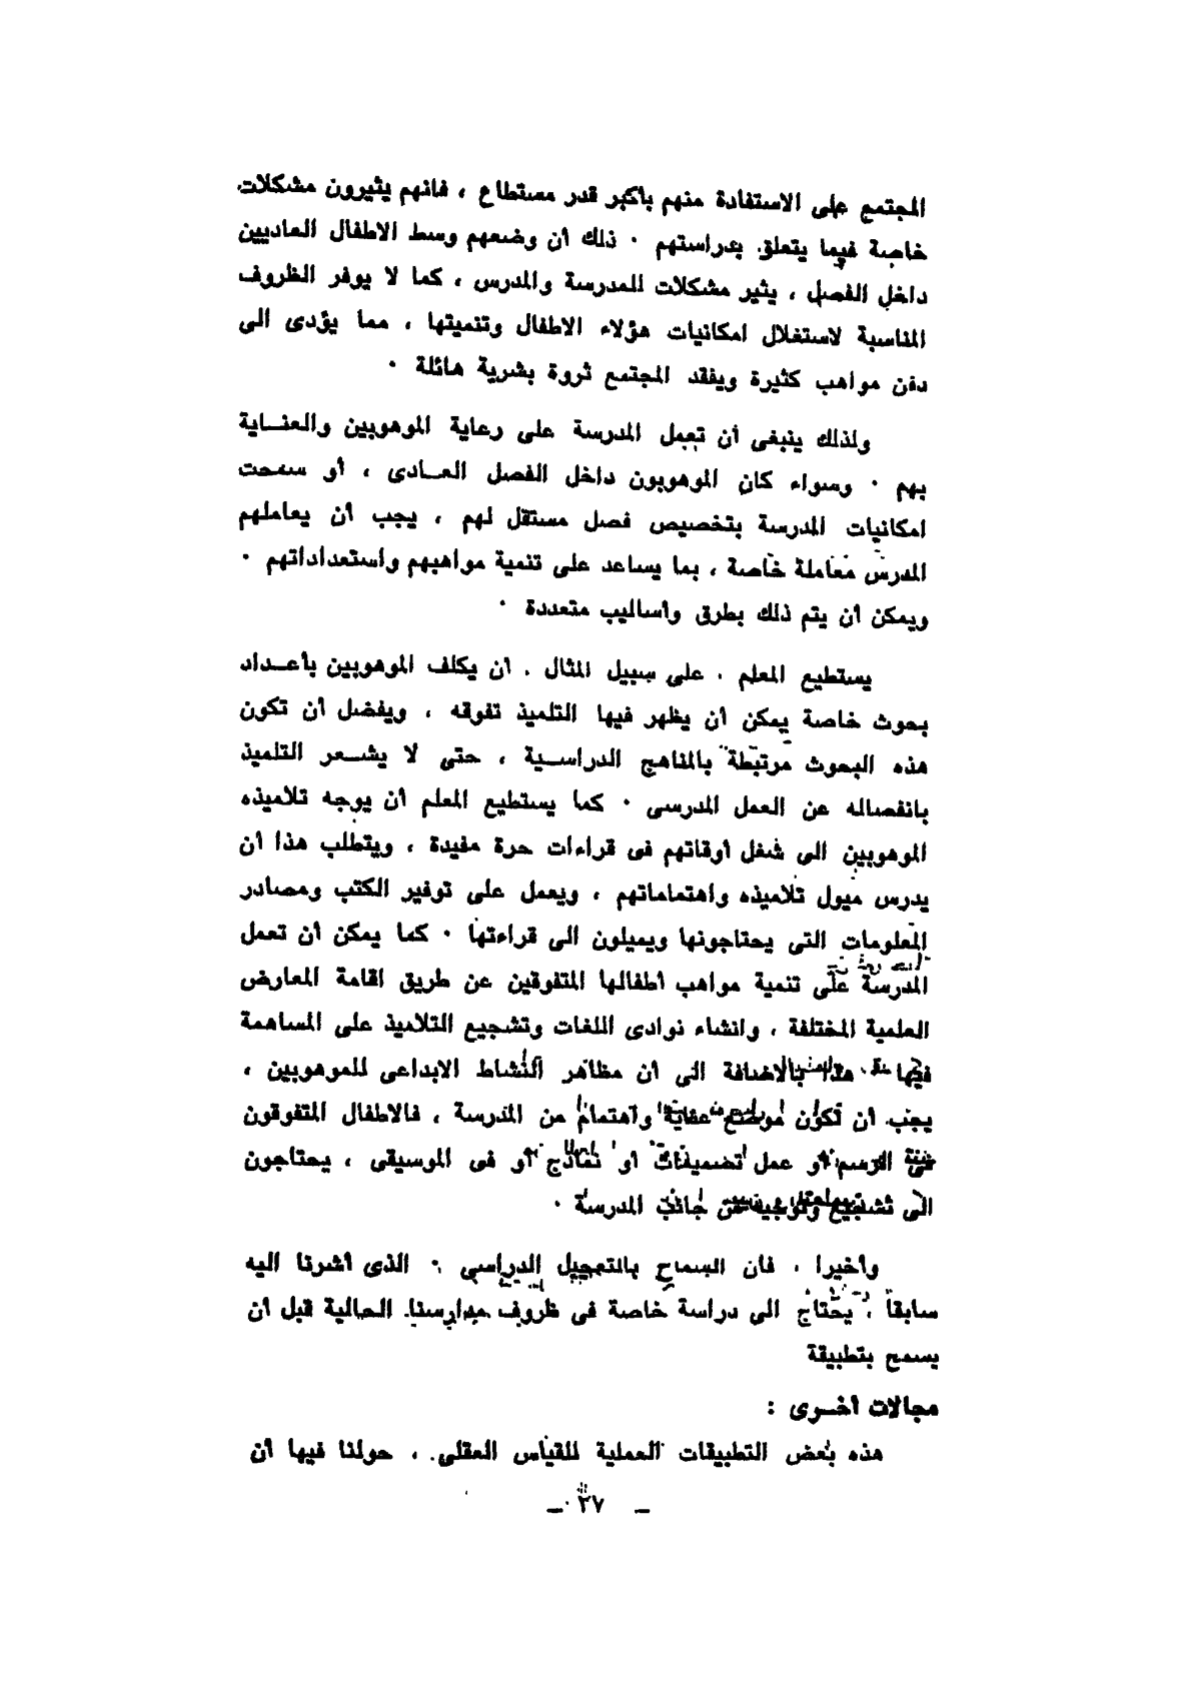 المجتمع على الاستفادة منهم بأكبر قدر مستطاع ، فانهم يثيرون مشكلات
خاصة فيما يتعلق بدراستهم ٠ ذلك أن وضعهم وسط الاطفال العاديين
داخل الفصل ، يثير مشكلات للمدرسة والمدرس ، كما لا يوفر الظروف
المناسبة لاستغلال امكانيات هؤلاء الاطفال وتنميتها ، مما يؤدى الى
دفن مواهب كثيرة ويفقد المجتمع ثروة بشرية هائلة ٠
ولذلك ينبغى أن تعمل المدرسة على رعاية الموهوبين والعنـــاية
بهم ٠ وسواء كان الموهوبون داخل الفصل العــادى ، أو سمحت
امكانيات المدرسة بتخصيص فصل مستقل لهم ، يجب أن يعاملهم
المدرس معاملة خاصة ، بما يساعد على تنمية مواهبهم واستعداداتهم ٠
ويمكن أن يتم ذلك بطرق وأساليب متعددة ٠
يستطيع المعلم ، على سبيل المثال ، أن يكلف الموهوبين بأعــداد
بحوث خاصة يمكن أن يظهر فيها التلميذ تفوقه ، ويفضل أن تكون
هذه البحوث مرتبطة بالمناهج الدراســية ، حتى لا يشــعر التلميذ
بانفصاله عن العمل المدرسى ٠ كما يستطيع المعلم أن يوجه تلاميذه
الموهوبين الى شغل أوقاتهم فى قراءات حرة مفيدة ، ويتطلب هذا أن
يدرس ميول تلاميذه واهتماماتهم ، ويعمل على توفير الكتب ومصادر
المعلومات التى يحتاجونها ويميلون الى قراءتها ٠ كما يمكن أن تعمل
المدرسة على تنمية مواهب أطفالها المتفوقين عن طريق اقامة المعارض
العلمية المختلفة ، وانشاء نوادى اللغات وتشجيع التلاميذ على المساهمة
فيها ٠ هذا بالاضافة الى أن مظاهر النشاط الابداعى للموهوبين ،
يجب أن تكون موضع عناية واهتمام من المدرسة ، فالاطفال المتفوقون
فى الرسم أو عمل تصميمات أو نماذج أو فى الموسيقى ، يحتاجون
الى تشجيع وتوجيه من جانب المدرسة ٠
وأخيرا ، فان السماح بالتعجيل الدراسى ، الذى أشرنا اليه
سابقا ، يحتاج الى دراسة خاصة فى ظروف مدارسنا الحالية قبل أن
يسمح بتطبيقة
مجالات أخــرى :
هذه بعض التطبيقات العملية للقياس العقلى ، حولنا فيها أن
ــ ٢٧ ــ